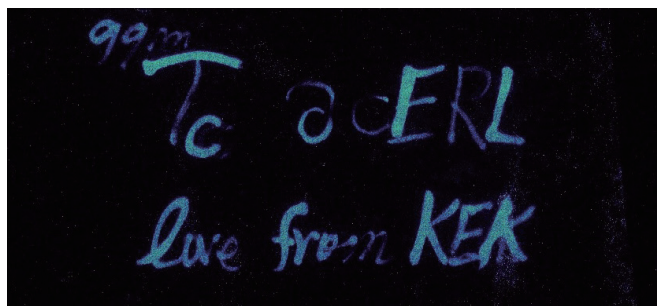 99mTc @ cERL
love from KEK